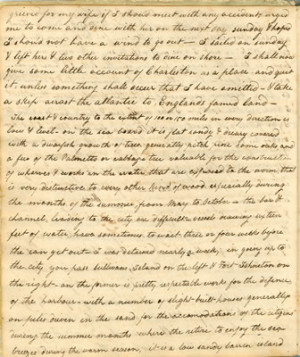 grieve for my wife if I should meet with any accident urged
me to come and dine with her on the next day sunday & hoped
I should not have a wind to go out — I sailed on sunday
& left her & two other invitations to dine on shore — I shall now
give some little account of Charleston as a place and quit
it, unless something shall occur that I have omitted — & take
a step across the atlantic to Englands famed land —
The coast & country to the extent of 100 or 50 miles in every direction is
low & level on the sea board it is flat sandy & dreary covered
with a dwarfish growth of trees generally pitch pine some oaks and
a few of the Palmetto or cabbage tree valuable for the construct
of wharves & works in the water that are exposed to the worm that
is very destructive to every other kind of wood especially during
the months of the summer, from May to October in the bar &
channel leading to the city are difficult vessels drawing sixteen
feet of water have sometimes to wait three or four weeks before
they can get out — I was detained nearly a week, in going up to
the city you pass Sullivans Island on the left & Fort Johnston on
the right — on the former is pretty respectable works for the defence
of the harbour — with a number of slight built houses generally
on piles driven in the sand for the accomodations of the citizens
during the summer months where they retire to enjoy the sea
breezes during the warm season, it is a low sandy barren island